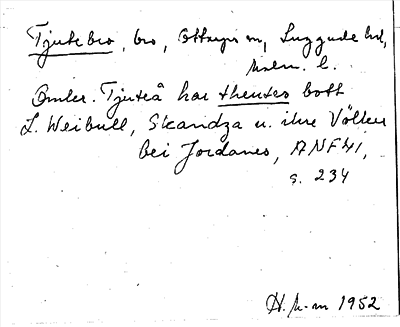 Tjutebro, bro, Ottarps sn, Luggude hd,
Malm. l.
Omkr. Tjuteå har theutes bott
L. Weibull, Skandza u. ihre Völker
bei Jordanes, ANF 41,
s. 234
1952